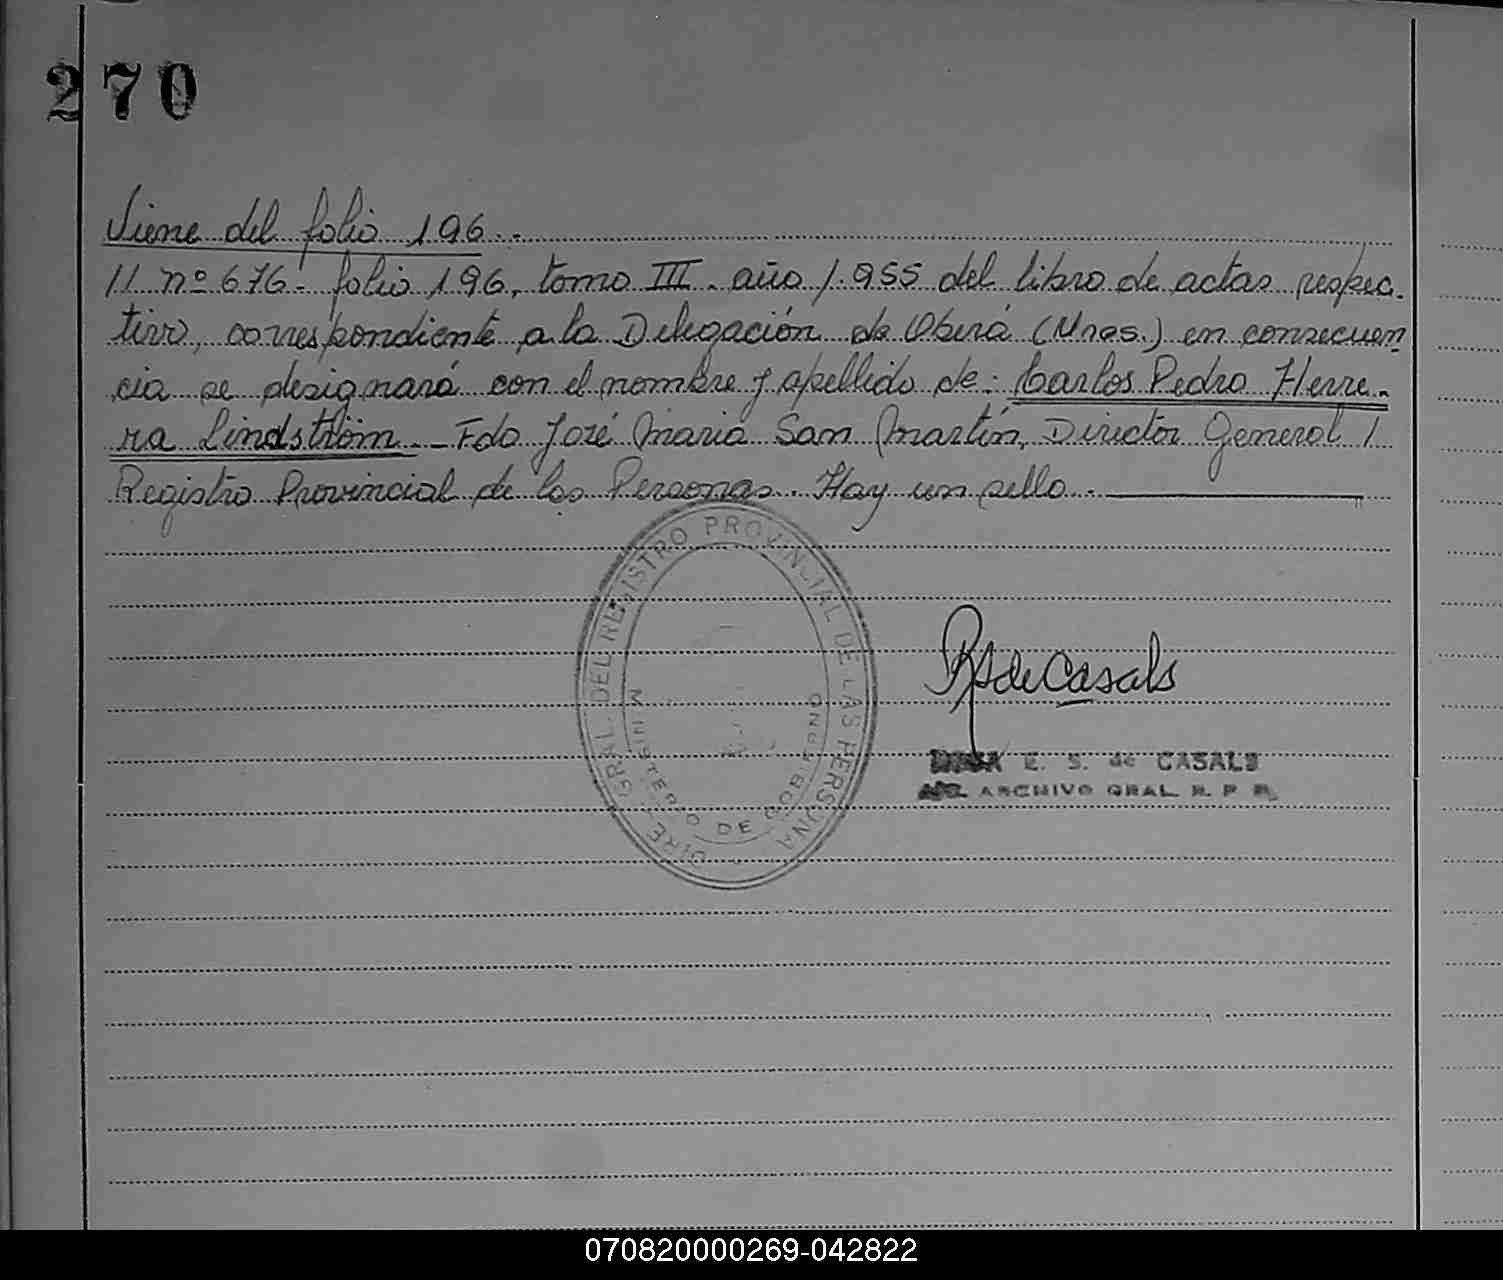 270
Viene del folio 196.-
// nº 676- folio 196, tomo III. año 1.955 del libro de actas respec-
tivo, correspondiente a la Delegación de Oberá (Mnes.) en consecuen
cia se designará con el nombre y apellido de: Carlos Pedro Herre-
ra Lindström.- Fdo José María San Martín, Director General /
Registro Provincial de las Personas. Hay un sello.-
DIRE. GRAL. DEL REGISTRO PROVINCIAL DE LAS PERSONA
MINISTERIO DE GOBIERNO
RS de Casals
E. S. de CASALS
ARCHIVO GRAL. R. P. P.
070820000269-042822